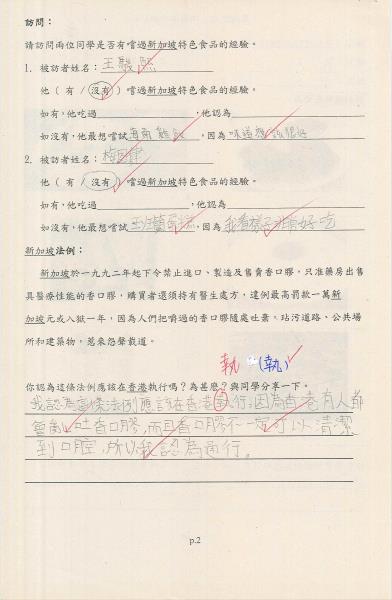 訪問：
請訪問兩位同學是否有嚐過新加坡特色食品的經驗。
1. 被訪者姓名：王駿熙
他（ 有 / 沒有 ）嚐過新加坡特色食品的經驗。
如有，他吃過，他認為。
如沒有，他最想嘗試海南雞飯，因為味道應該很好
2. 被訪者姓名：梅
他（ 有 / 沒有 ）嚐過新加坡特色食品的經驗。
如有，他吃過，他認為。
如沒有，他最想嘗試班蘭蛋糕，因為我看樣子非常好吃
新加坡法例：
新加坡於一九九二年起下令禁止進口、製造及售賣香口膠，只准藥房出售
具醫療性能的香口膠，購買者還須持有醫生處方，違例最高罰款一萬新
加坡元或入獄一年，因為人們把嚼過的香口膠隨處吐棄，玷污道路、公共場
所和建築物，惹來怨聲載道。
執 (執)
你認為這條法例應該在香港執行嗎？為甚麼？與同學分享一下。
我認為這條法例應該在香港執行，因為香港有人都
會亂吐香口膠，而且香口膠不一定可以清潔
到口腔，所以我認為通行。
p.2